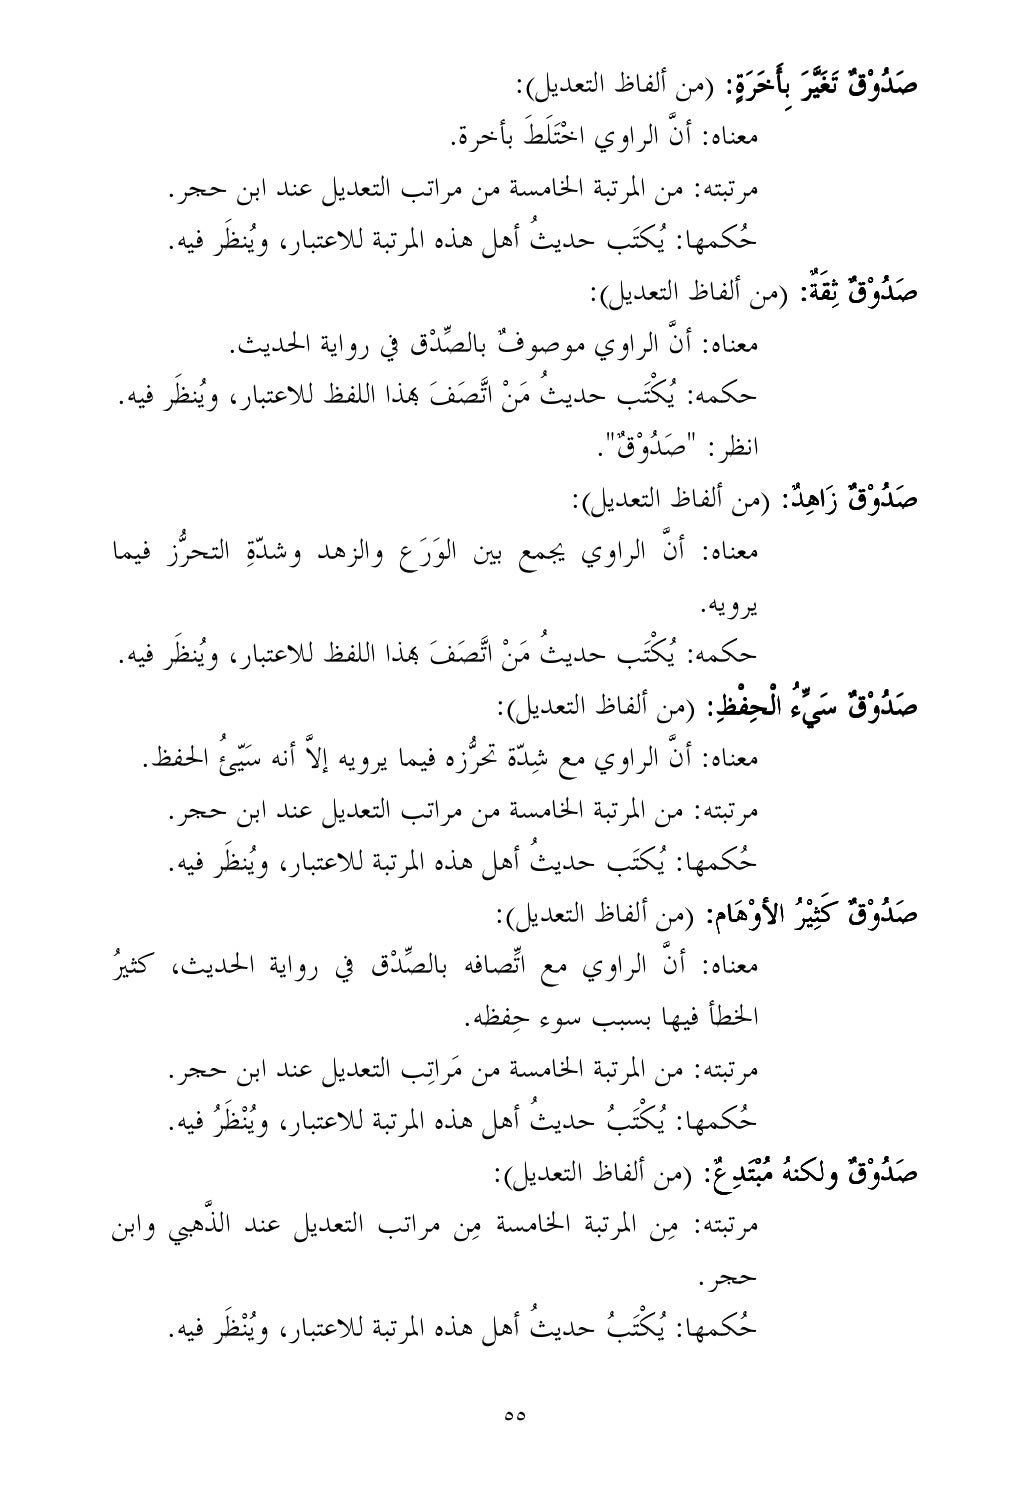 صَدُوْقٌ تَغَيَّرَ بِأَخَرَةٍ: (من ألفاظ التعديل):
معناه: أنَّ الراوي اخْتَلَطَ بأخرة.
مرتبته: من المرتبة الخامسة من مراتب التعديل عند ابن حجر.
حُكمها: يُكتَب حديثُ أهل هذه المرتبة للاعتبار، ويُنظَر فيه.
صَدُوْقٌ ثِقَةٌ: (من ألفاظ التعديل):
معناه: أنَّ الراوي موصوفٌ بالصِّدْق في رواية الحديث.
حكمه: يُكْتَب حديثُ مَنْ اتَّصَفَ بهذا اللفظ للاعتبار، ويُنظَر فيه.
انظر: "صَدُوْقٌ".
صَدُوْقٌ زَاهِدٌ: (من ألفاظ التعديل):
معناه: أنَّ الراوي يجمع بين الوَرَع والزهد وشدّةِ التحرُّز فيما
يرويه.
حكمه: يُكْتَب حديثُ مَنْ اتَّصَفَ بهذا اللفظ للاعتبار، ويُنظَر فيه.
صَدُوْقٌ سَيِّءُ الْحِفْظِ: (من ألفاظ التعديل):
معناه: أنَّ الراوي مع شِدّة تحرُّزه فيما يرويه إلاَّ أنه سَيّئُ الحفظ.
مرتبته: من المرتبة الخامسة من مراتب التعديل عند ابن حجر.
حُكمها: يُكتَب حديثُ أهل هذه المرتبة للاعتبار، ويُنظَر فيه.
صَدُوْقٌ كَثِيْرُ الأوْهَام: (من ألفاظ التعديل):
معناه: أنَّ الراوي مع اتِّصافه بالصِّدْق في رواية الحديث، كثيرُ
الخطأ فيها بسبب سوء حِفظه.
مرتبته: من المرتبة الخامسة من مَراتِب التعديل عند ابن حجر.
حُكمها: يُكْتَبُ حديثُ أهل هذه المرتبة للاعتبار، ويُنْظَرُ فيه.
صَدُوْقٌ ولكنهُ مُبْتَدِعٌ: (من ألفاظ التعديل):
مرتبته: مِن المرتبة الخامسة مِن مراتب التعديل عند الذَّهبي وابن
حجر.
حُكمها: يُكْتَبُ حديثُ أهل هذه المرتبة للاعتبار، ويُنْظَر فيه.
٥٥